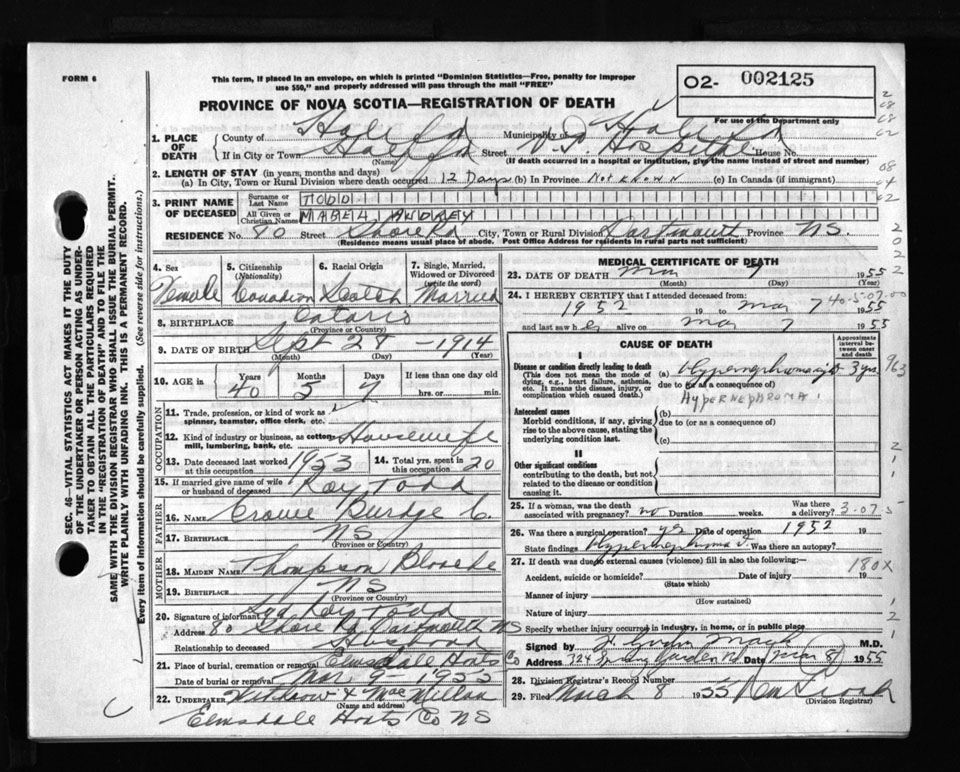 FORM 6
This form, if placed in an envelope, on which is printed "Dominion Statistics—Free, penalty for improper
use $50," and properly addressed will pass through the mail "FREE"
O2- 002125
For use of the Department only
PROVINCE OF NOVA SCOTIA—REGISTRATION OF DEATH
1. PLACE OF DEATH
County of Halifax Municipality of Halifax
If in City or Town Halifax Street V.G. Hospital House No.
(Name) (If death occurred in a hospital or institution, give the name instead of street and number)
2. LENGTH OF STAY (in years, months and days)
(a) In City, Town or Rural Division where death occurred 12 Days (b) In Province Not Known (c) In Canada (if immigrant)
3. PRINT NAME OF DECEASED
Surname or Last Name TODD
All Given or Christian Names MABEL AUDREY
RESIDENCE No. 80 Street Shore Rd City, Town or Rural Division Dartmouth Province NS.
(Residence means usual place of abode. Post Office Address for residents in rural parts not sufficient)
4. Sex Female
5. Citizenship (Nationality) Canadian
6. Racial Origin Scotch
7. Single, Married, Widowed or Divorced (write the word) Married
8. BIRTHPLACE Ontario
(Province or Country)
9. DATE OF BIRTH Sept 28 - 1914
(Month) (Day) (Year)
10. AGE in Years Months Days If less than one day old
40 5 7 hrs. or min.
OCCUPATION
11. Trade, profession, or kind of work as spinner, teamster, office clerk, etc.
12. Kind of industry or business, as cotton mill, lumbering, bank, etc. Housewife
13. Date deceased last worked at this occupation 1953
14. Total yrs. spent in this occupation 20
15. If married give name of wife or husband of deceased Roy Todd
FATHER
16. NAME Crowe Burdge C.
17. BIRTHPLACE NS
(Province or Country)
MOTHER
18. MAIDEN NAME Thompson Blanche
19. BIRTHPLACE NS
(Province or Country)
20. Signature of informant Sgd Roy Todd
Address 80 Shore Rd Dartmouth NS
Relationship to deceased Husband
21. Place of burial, cremation or removal Elmsdale Hants Co
Date of burial or removal Mar 9 - 1955
22. UNDERTAKER Withrow & MacMillan
(Name and address)
Elmsdale Hants Co NS
MEDICAL CERTIFICATE OF DEATH
23. DATE OF DEATH Mar 7 1955
(Month) (Day)
24. I HEREBY CERTIFY that I attended deceased from:
1952 19 to Mar 7 1955
40-5-07-00
and last saw her alive on Mar 7 1955
CAUSE OF DEATH
Approximate interval between onset and death
I
Disease or condition directly leading to death
(This does not mean the mode of dying, e.g., heart failure, asthenia, etc. It means the disease, injury, or complication which caused death.)
(a) 3 yrs.
due to (or as a consequence of)
HYPERNEPHROMA.
Antecedent causes
Morbid conditions, if any, giving rise to the above cause, stating the underlying condition last.
(b)
due to (or as a consequence of)
(c)
II
Other significant conditions
contributing to the death, but not related to the disease or condition causing it.
25. If a woman, was the death associated with pregnancy? no Duration weeks. Was there a delivery? 3-07-5
26. Was there a surgical operation? yes Date of operation 1952 19
State findings Was there an autopsy?
27. If death was due to external causes (violence) fill in also the following:—
180X
Accident, suicide or homicide? Date of injury 19
(State which)
Manner of injury
(How sustained)
Nature of injury
Specify whether injury occurred in industry, in home, or in public place
Signed by M.D.
Address 324 Spring Garden Rd Date Mar 8 1955
28. Division Registrar's Record Number
29. Filed March 8 1955
(Division Registrar)
SEC. 46—VITAL STATISTICS ACT MAKES IT THE DUTY
OF THE UNDERTAKER OR PERSON ACTING AS UNDER-
TAKER TO OBTAIN ALL THE PARTICULARS REQUIRED
IN THE "REGISTRATION OF DEATH" AND TO FILE THE
SAME WITH THE DIVISION REGISTRAR WHO SHALL ISSUE THE BURIAL PERMIT.
WRITE PLAINLY WITH UNFADING INK. THIS IS A PERMANENT RECORD.
Every item of information should be carefully supplied. (See reverse side for instructions).